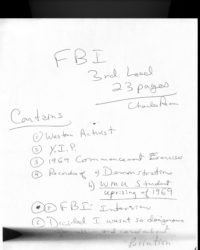 FBI
3rd Level
23 pages
Contains
① Western Activist
② Y.I.P.
③ 1969 Commencement Exercises
④ Recording of Demonstration
b) WMU Student
uprising - 1969
FBI Interview
Decided I wasn't so dangerous
Pollution